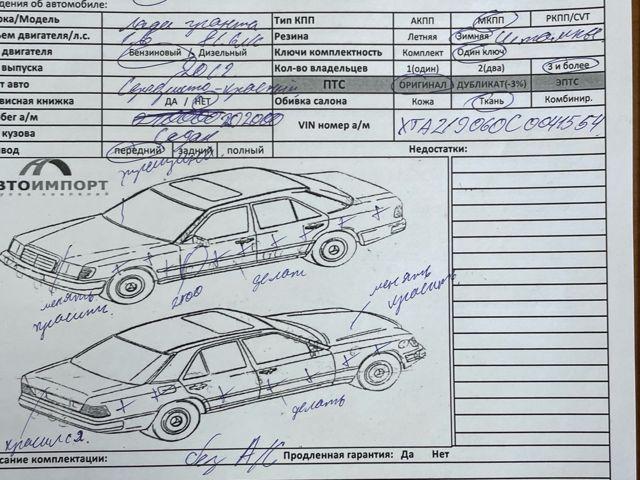 дения об автомобиле:
рка/Модель Лада гранта Тип КПП АКПП МКПП РКПП/CVT
ъем двигателя/л.с. Резина Летняя Зимняя
двигателя Бензиновый Дизельный Ключи комплектность Комплект Один ключ
выпуска 2012 Кол-во владельцев 1(один) 2(два) 3 и более
ет авто Серебристо-красный ПТС ОРИГИНАЛ ДУБЛИКАТ(-3%) ЭПТС
висная книжка ДА / НЕТ Обивка салона Кожа Ткань Комбинир.
бег а/м 202000 VIN номер а/м XTA219060C0041554
кузова Седан
вод передний задний полный Недостатки:
трещина
ВТОИМПОРТ
менять красить
2100
делат
менять красить
делать
красился.
исание комплектации: без A/C Продленная гарантия: Да Нет